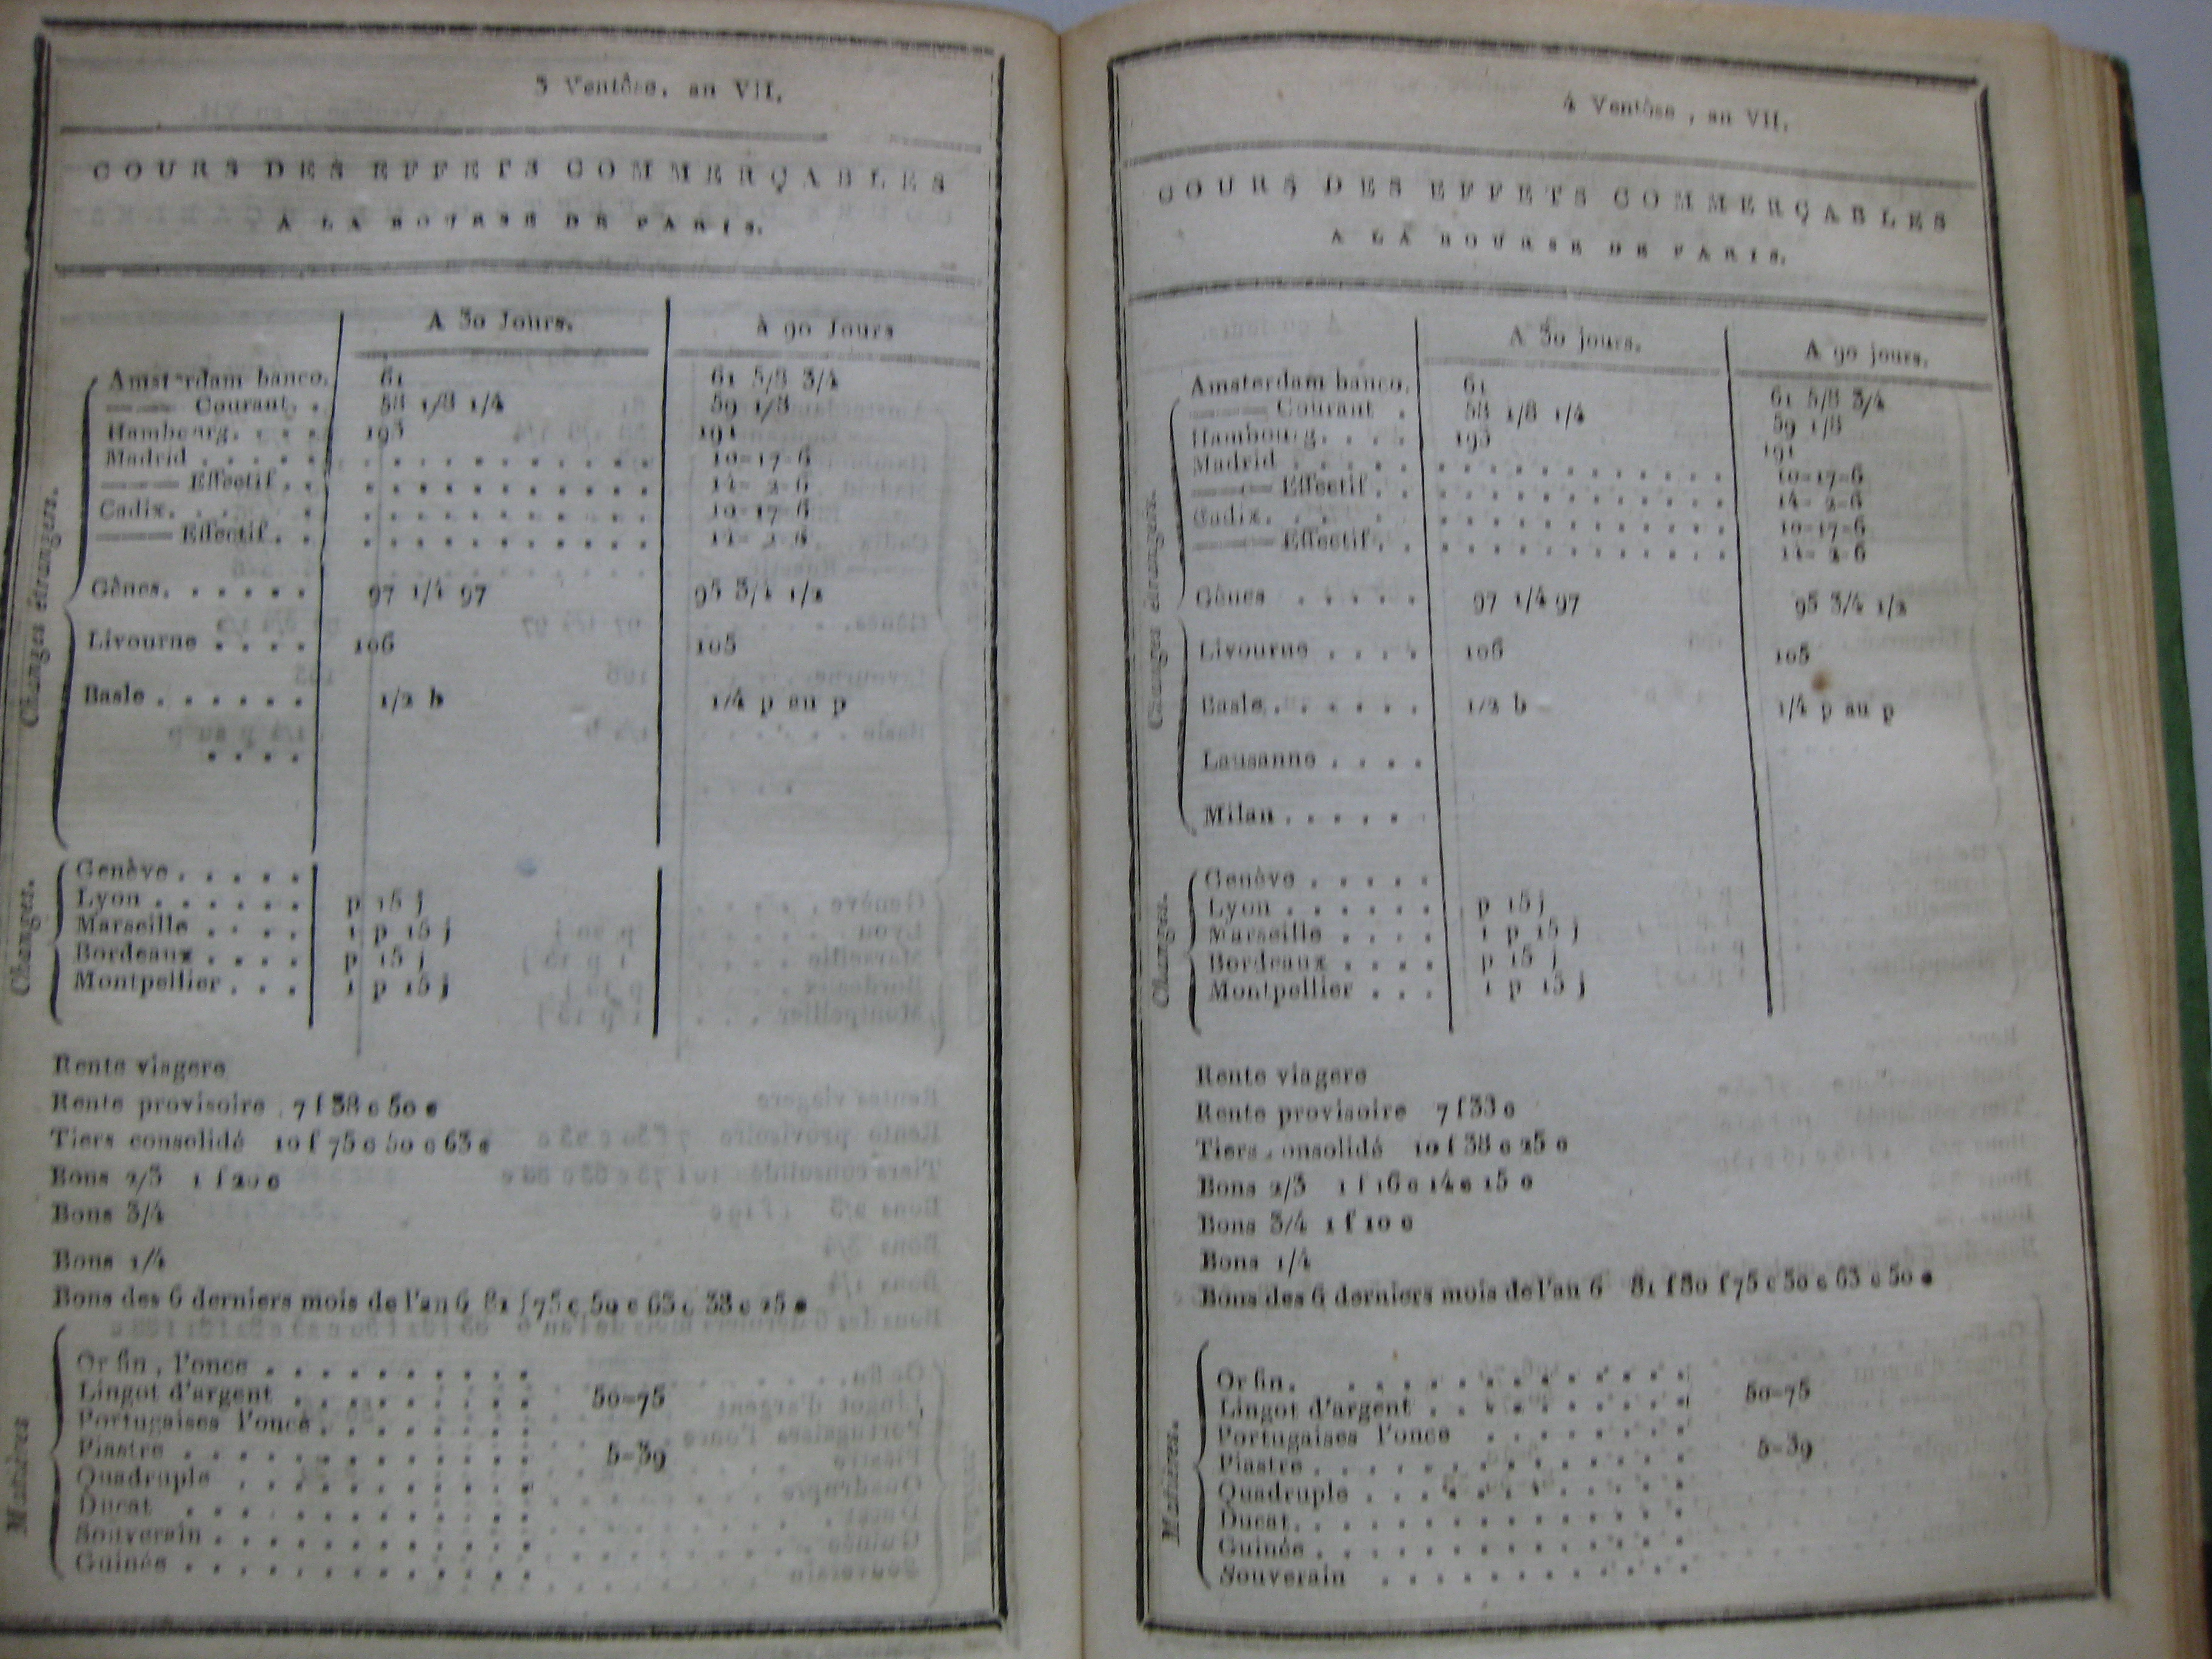 3 Ventôse, an VII.
COURS DES EFFETS COMMERÇABLES
A LA BOURSE DE PARIS.
A 30 Jours. à 90 Jours
Changes étrangers.
Amsterdam banco. 61 61 5/8 3/4
Courant. . 58 1/8 1/4 59 1/8
Hambourg. . . . 193 191
Madrid . . . . . . . . . . . . . . . . 10-17-6
Effectif . . . . . . . . . . . . . . 14- 2-6
Cadix. . . . . . . . . . . . . . . . 10-17-6
Effectif . . . . . . . . . . . . . . 14- 2-6
Gênes. . . . . . 97 1/4 97 95 3/4 1/2
Livourne . . . . 106 105
Basle . . . . . . 1/2 b 1/4 p au p
. . . .
Changes.
Genève . . . . .
Lyon . . . . . . p 15 j
Marseille . . . . 1 p 15 j
Bordeaux . . . . p 15 j
Montpellier . . . 1 p 15 j
Rente viagere
Rente provisoire 7 f 38 c 50 c
Tiers consolidé 10 f 75 c 50 c 63 c
Bons 2/3 1 f 20 c
Bons 3/4
Bons 1/4
Bons des 6 derniers mois de l'an 6 81 f 75 c 50 c 63 c 38 c 25 c
Matières
Or fin, l'once . . . . . . . . . .
Lingot d'argent . . . . . . . . . 50-75
Portugaises l'once . . . . . . . .
Piastre . . . . . . . . . . . . . 5-39
Quadruple . . . . . . . . . . .
Ducat . . . . . . . . . . . . .
Souverain . . . . . . . . . . . .
Guinée . . . . . . . . . . . . .
4 Ventôse, an VII.
COURS DES EFFETS COMMERÇABLES
A LA BOURSE DE PARIS.
A 30 jours. A 90 jours.
Changes étrangers.
Amsterdam banco. 61 61 5/8 3/4
Courant . 58 1/8 1/4 59 1/8
Hambourg. . . . 193 191
Madrid . . . . . . . . . . . . . . . . 10-17-6
Effectif . . . . . . . . . . . . . . 14- 2-6
Cadix. . . . . . . . . . . . . . . . 10-17-6
Effectif . . . . . . . . . . . . . . 14- 2-6
Gênes . . . . . 97 1/4 97 95 3/4 1/2
Livourne . . . . 106 105
Basle . . . . . . 1/2 b 1/4 p au p
Lausanne . . . .
Milan . . . . .
Changes.
Genève . . . . .
Lyon . . . . . . p 15 j
Marseille . . . . 1 p 15 j
Bordeaux . . . . p 15 j
Montpellier . . . 1 p 15 j
Rente viagere
Rente provisoire 7 f 33 c
Tiers consolidé 10 f 38 c 25 c
Bons 2/3 1 f 16 c 14 c 15 c
Bons 3/4 1 f 10 c
Bons 1/4
Bons des 6 derniers mois de l'an 6 81 f 80 f 75 c 50 c 63 c 50 c
Matières.
Or fin. . . . . . . . . . . . . .
Lingot d'argent . . . . . . . . . . 50-75
Portugaises l'once . . . . . . . .
Piastre . . . . . . . . . . . . . . 5-39
Quadruple . . . . . . . . . . . .
Ducat. . . . . . . . . . . . . . .
Guinée . . . . . . . . . . . . . .
Souverain . . . . . . . . . . . .